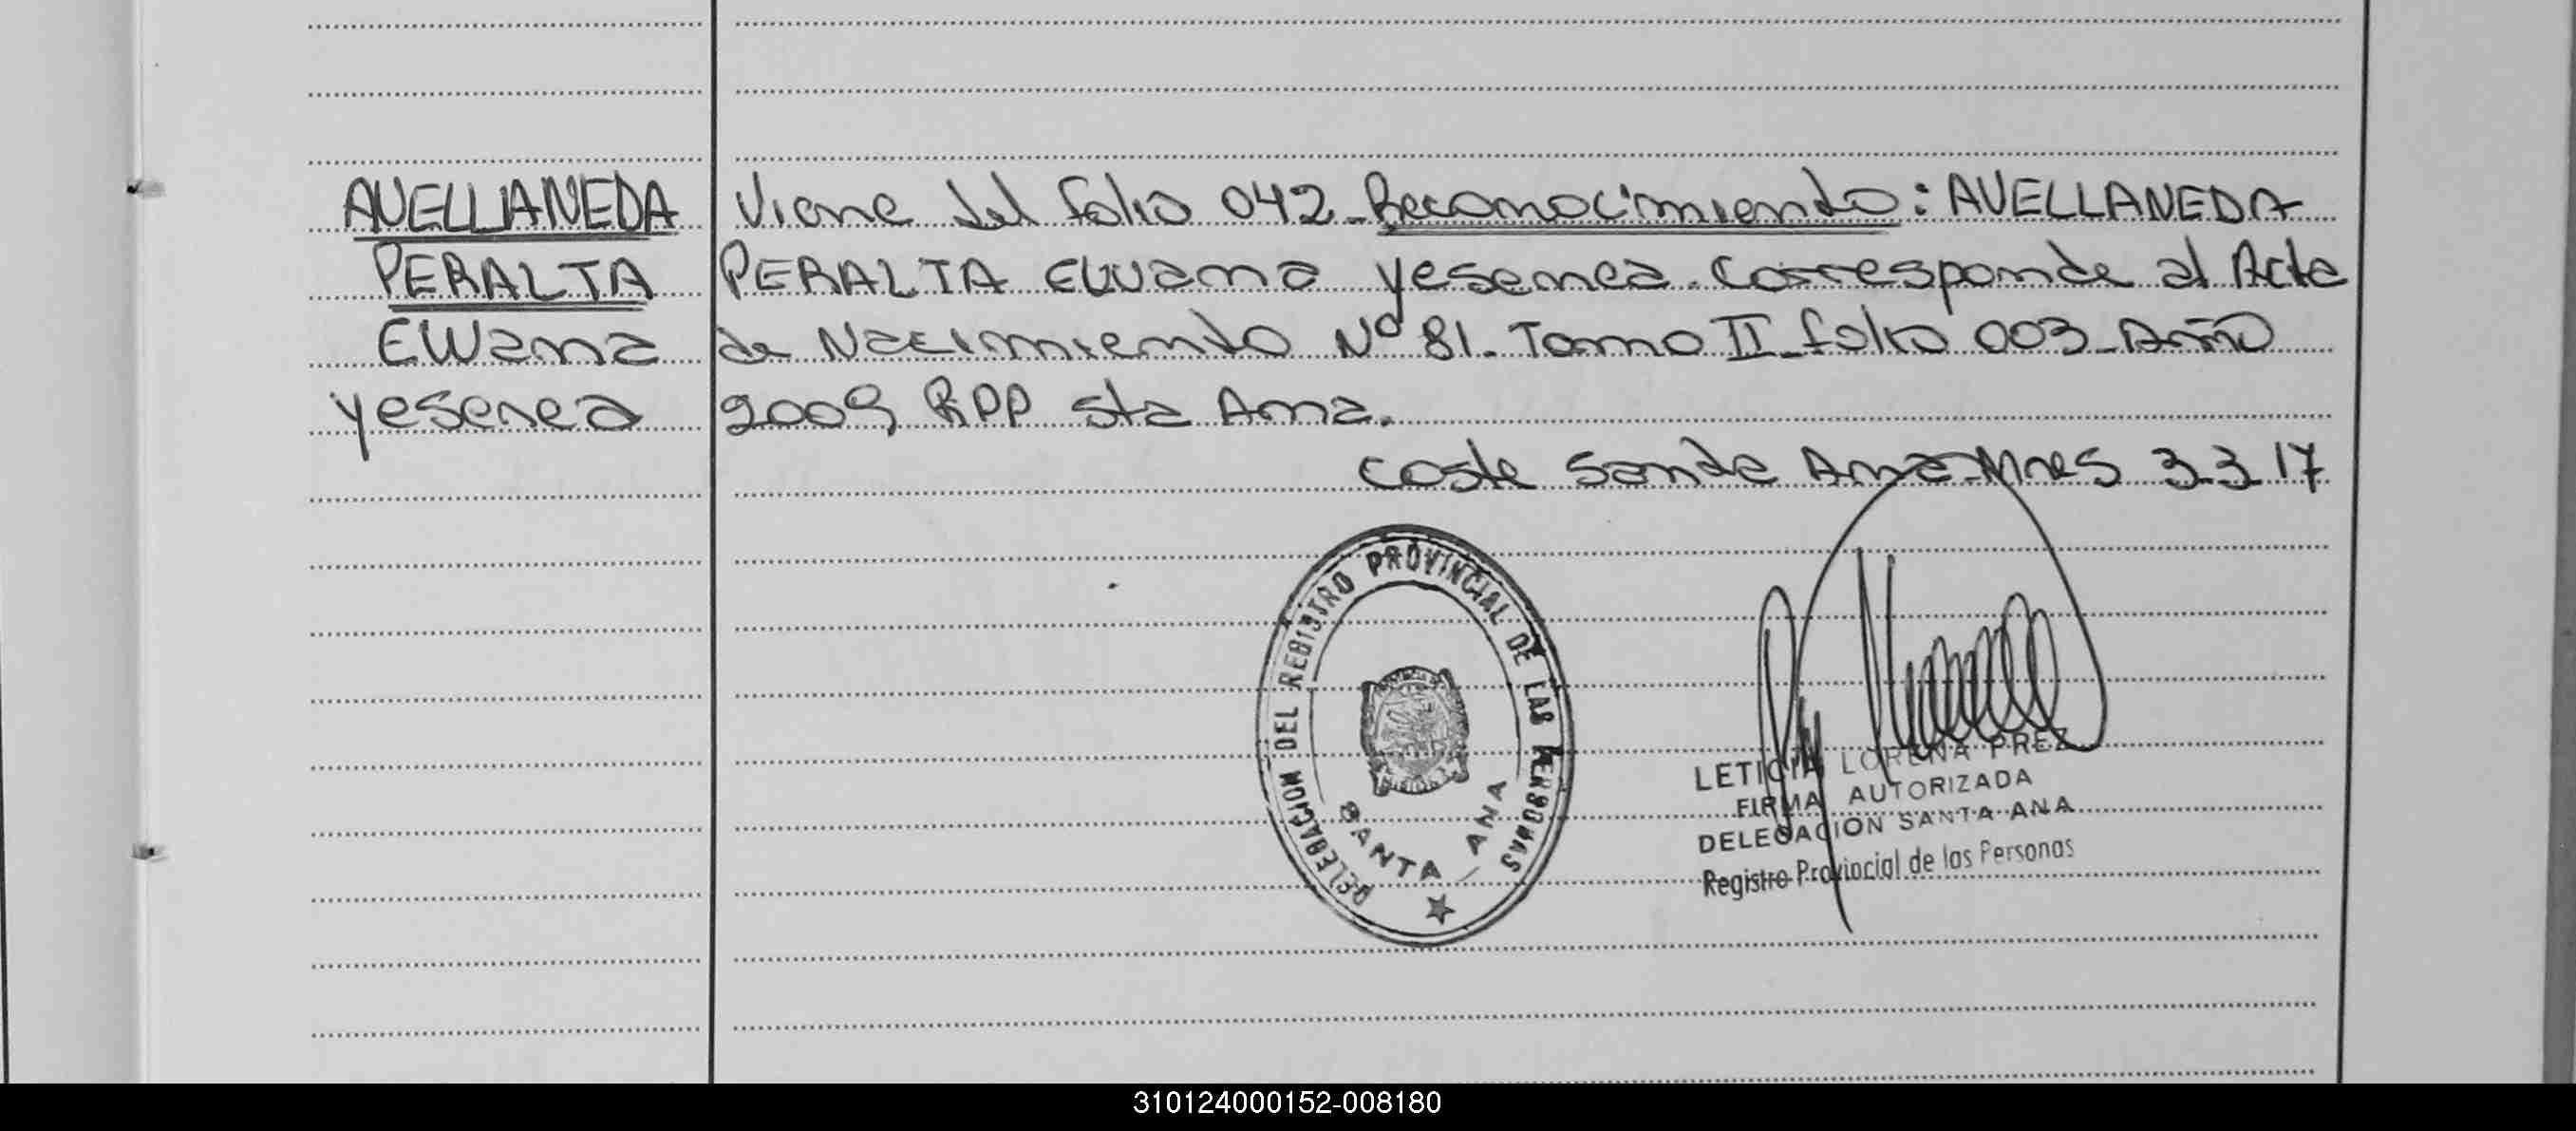 AVELLANEDA
PERALTA
EWana
yesenea
Viene del folio 042-Reconocimiento: AVELLANEDA
PERALTA EWana yesenea. Corresponde al Acta
de Nacimiento Nº 81. Tomo II-folio 003-Año
2009 RPP sta Ana.
Coste Santa Ana-Mnes 3.3.17
DELEGACION DEL REGISTRO PROVINCIAL DE LAS PERSONAS
SANTA ANA
LETICIA LORENA PREZ
FIRMA AUTORIZADA
DELEGACION SANTA ANA
Registro Provincial de las Personas
310124000152-008180